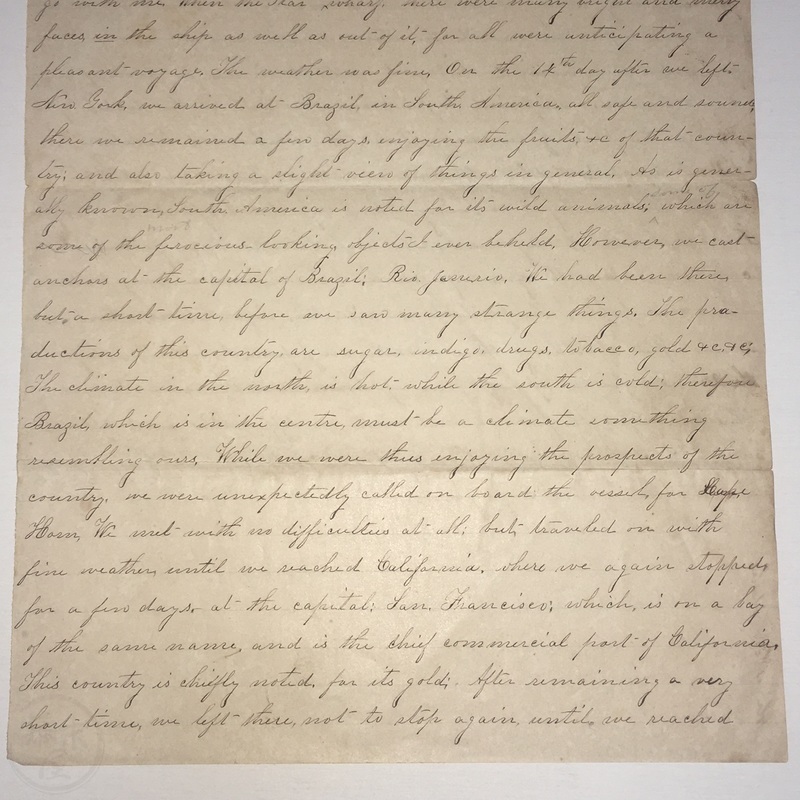 go with me. When the Star wharf, there were many bright and merry
faces in the ship as well as out of it, for all were anticipating a
pleasant voyage. The weather was fine. On the 14th day after we left
New York, we arrived at Brazil, in South America, all safe and sound;
there we remained a few days, enjoying the fruits, &c of that coun-
try; and also taking a slight view of things in general. As is gener-
ally known, South America is noted for its wild animals; which are
some of the ferocious looking objects I ever beheld. However, we cast
anchors at the capital of Brazil; Rio Janerio. We had been there
but a short time, before we saw many strange things. The pro-
ductions of this country are sugar, indigo, drugs, tobacco, gold &c, &c;
The climate in the north, is hot, while the south is cold; therefore
Brazil, which is in the centre, must be a climate something
resembling ours. While we were thus enjoying the prospects of the
country, we were unexpectedly called on board the vessel, for Cape
Horn, We met with no difficulties at all; but, traveled on with
fine weather, until we reached California, where we again stopped,
for a few days, at the capital; San, Francisco; which, is on a bay
of the same name, and is the chief commercial port of California.
This country is chiefly noted, for its gold; After remaining a very
short time, we left there, not to stop again, until, we reached